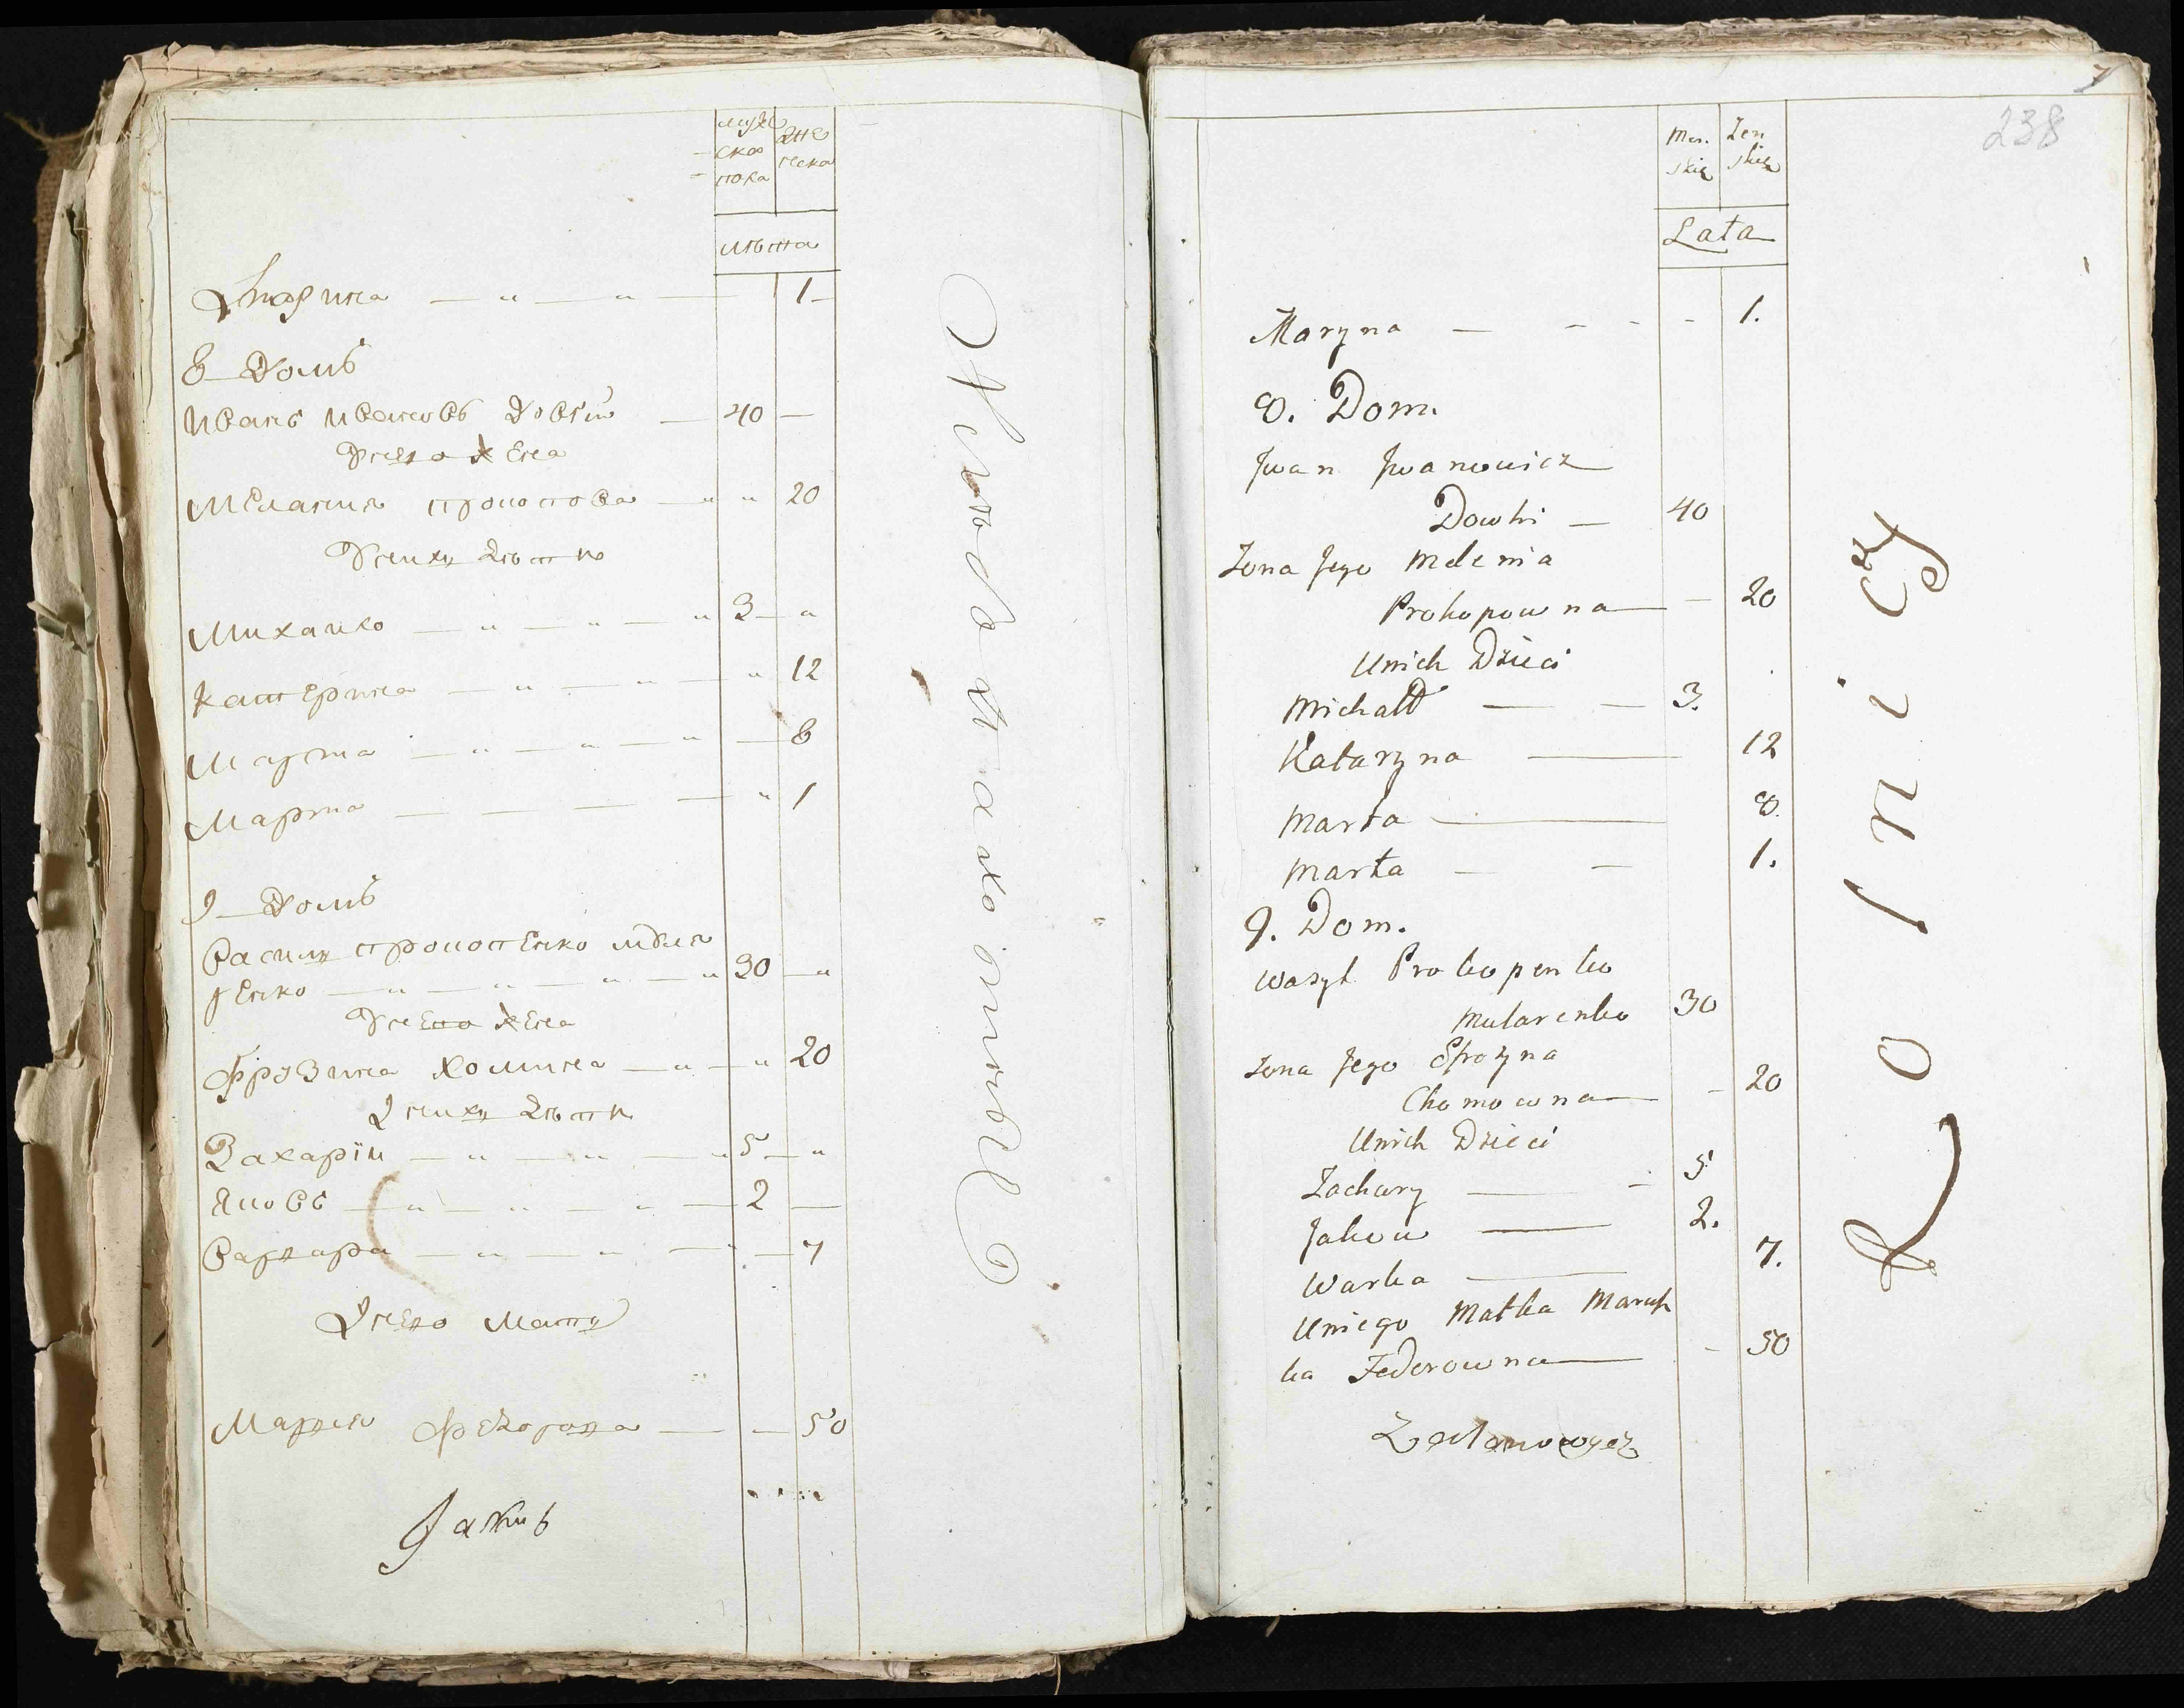 муже
ска
пола
жне
ска
лѣта
Марина 1
8 Домъ
Иванъ Ивановъ Довгий 40
У него жена
Мелания Прокопова 20
У них дѣти
Михайло 3
Катерина 12
Марта 8
Марта 1
9 Домъ
Василь Прокопенко Муля
ренко 30
У него жена
Фрузина Хомина 20
У них дѣти
Захарій 5
Яковъ 2
Варвара 7
У него мать
Мария Федорова 50
7
238
Mes.
skie
Zen
skie
Lata
Maryna 1.
8. Dom.
Jwan Jwanowicz
Dowhi 40
Zona Jego Melenia
Prokopowna 20
Unich Dzieci
Michałł 3.
Kataryna 12
Marta 8.
Marta 1.
9. Dom.
Wasyl Prokopenko
Mularenko 30
Zona Jego Efrozyna
Chomowna 20
Unich Dzieci
Zachary 5
Jakow 2.
Warka 7.
Uniego Matka Marus
ka Fedorowna 50
Rolnicy